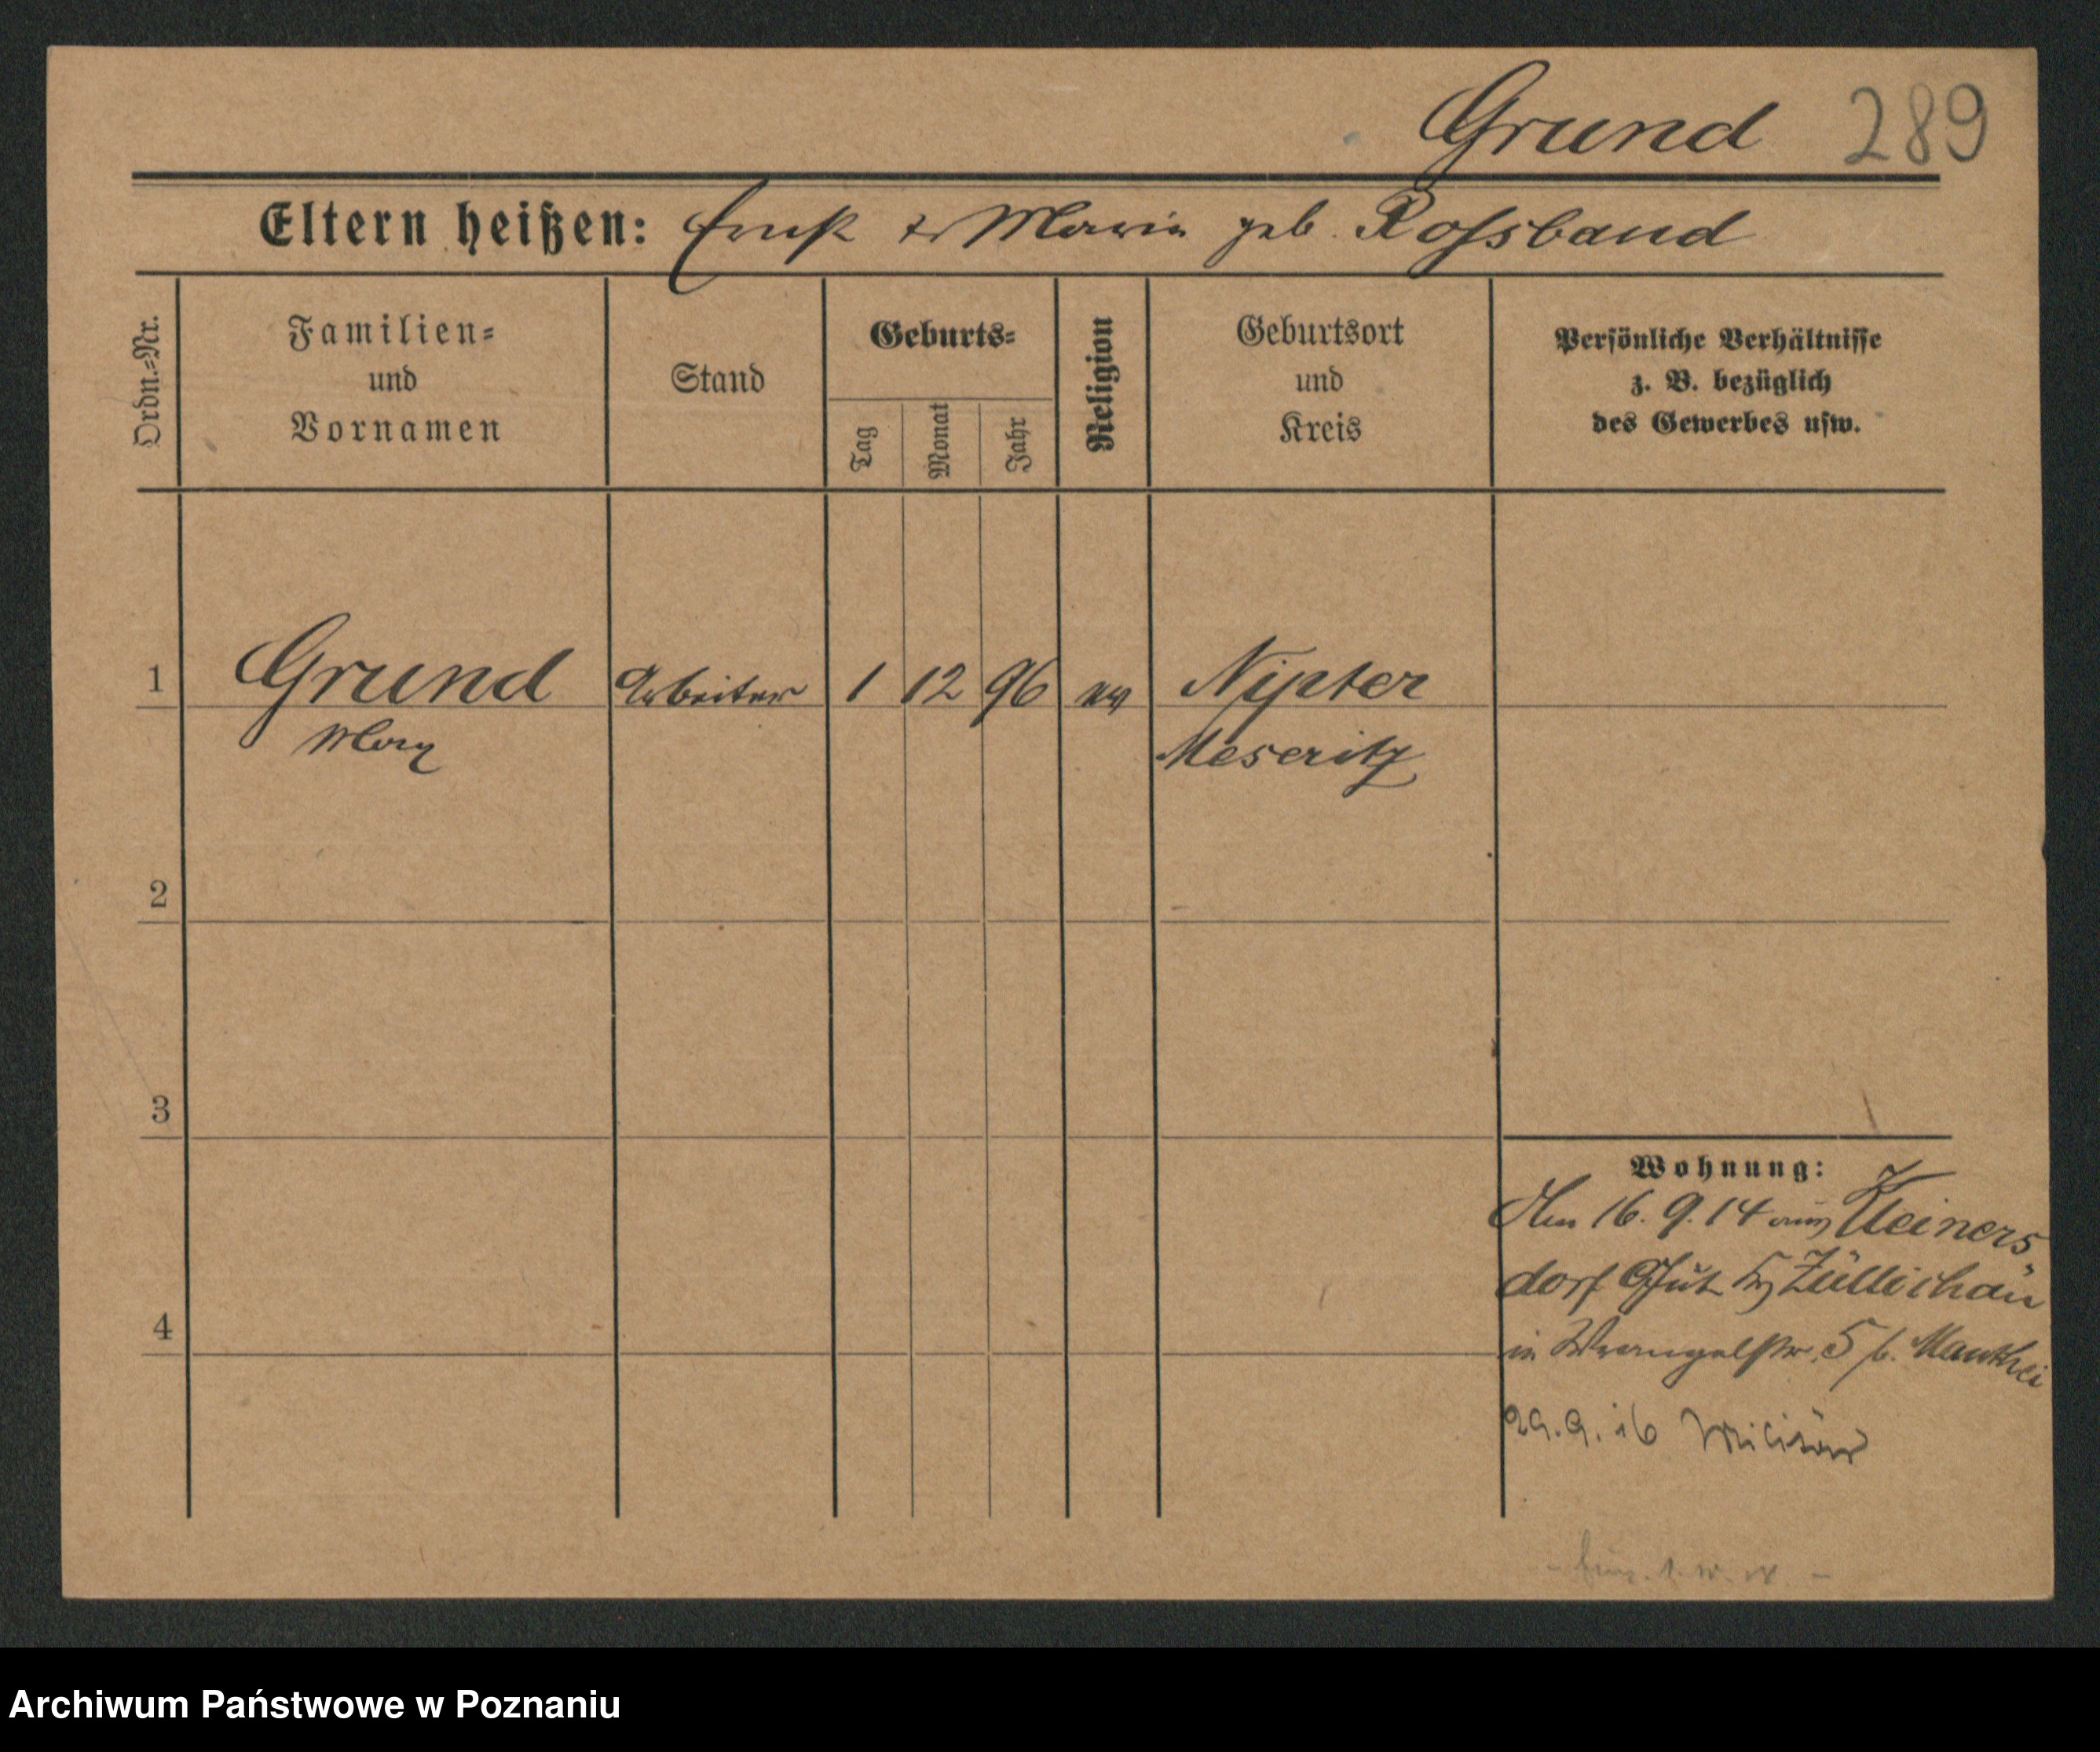 Grund 289
Eltern heißen: Ernst & Maria geb. Rossband
Ordn.-Nr.
Familien-
und
Vornamen
Stand
Geburts-
Tag
Monat
Jahr
Religion
Geburtsort
und
Kreis
Persönliche Verhältnisse
z. B. bezüglich
des Gewerbes usw.
1 Grund Arbeiter 1 12 96 ev Nipter
Max Meseritz
2
3
4
Wohnung:
Am 16. 9. 14 aus Kleiners
dorf Gut Züllichau
in Wrangelstr. 5 b. Manthei
29. 9. 16 Militär
Archiwum Państwowe w Poznaniu